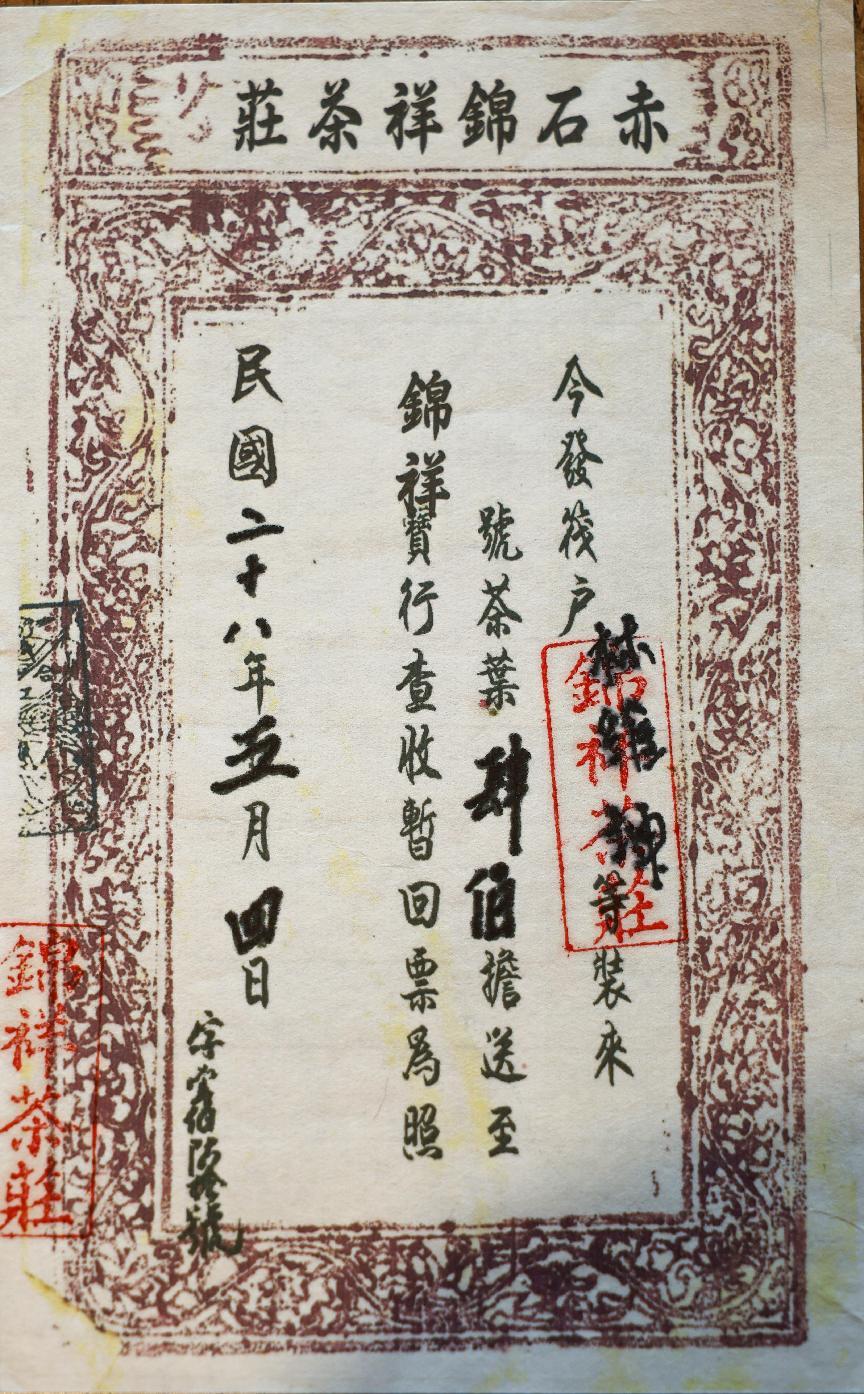 赤石錦祥茶莊
今發筏户林等裝來
號茶葉肆伯擔送至
錦祥寶行查收暫回票為照
民國二十八年五月四日
字號
錦祥茶莊
錦祥茶莊